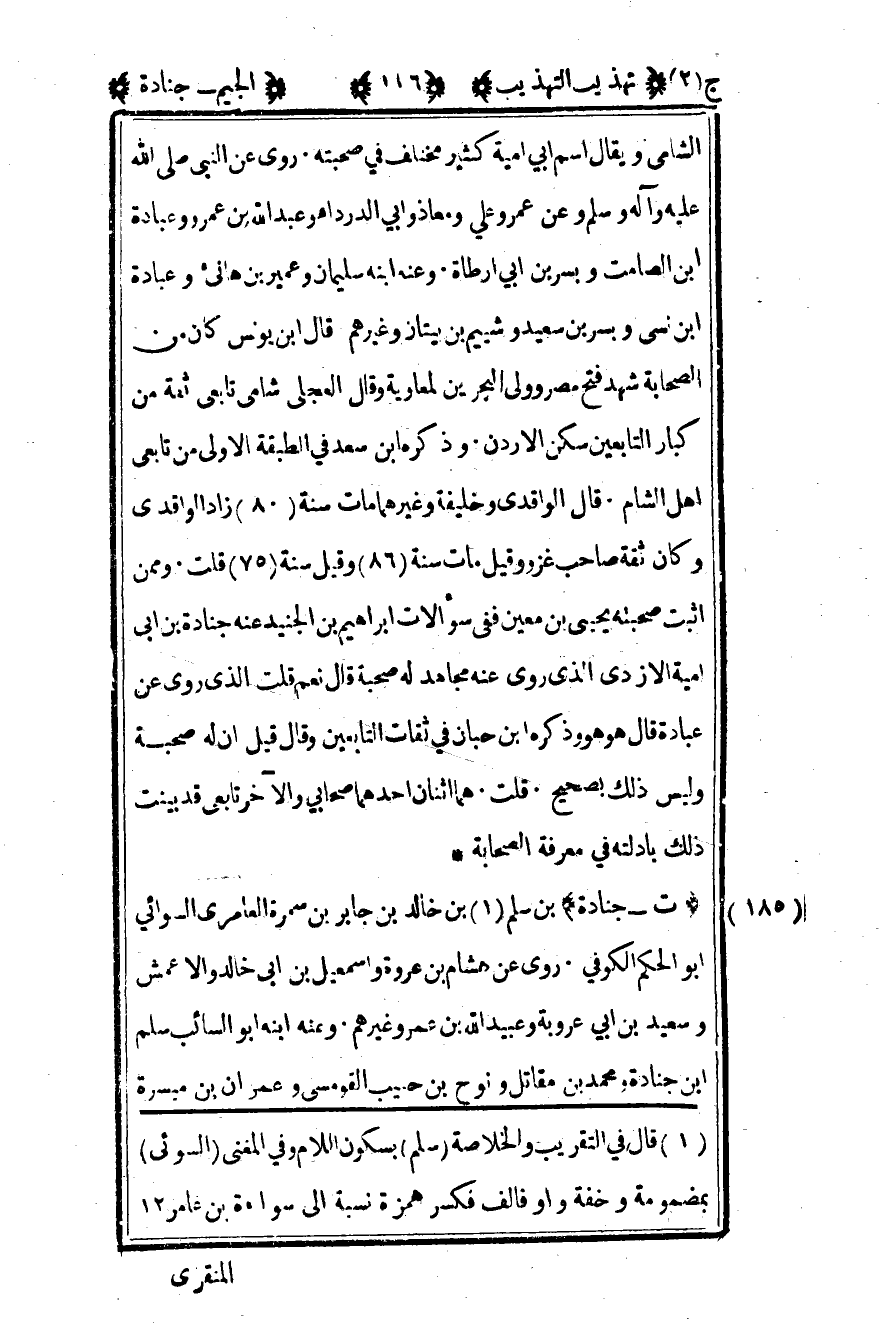 ج(٢) ﴿ تهذيب التهذيب ﴾ ﴿١١٦﴾ ﴿ الجيم ـ جنادة ﴾
الشامى و يقال اسم ابي امية كثير مختلف في صحبته ٠ روى عن النبى صلى الله
عليه وآله و سلم و عن عمرو علي و معاذ و ابي الدرداء و عبد الله بن عمرو و عبادة
ابن الصامت و بسر بن ابي ارطاة ٠ وعنه ابنه سليمان و عمير بن هانئ و عبادة
ابن نسى و بسر بن سعيد و شييم بن بيتان وغيرهم قال ابن يونس كان من
الصحابة شهد فتح مصر وولى البحرين لمعاوية وقال العجلى شامى تابعى ثقة من
كبار التابعين سكن الاردن ٠ و ذكره ابن سعد في الطبقة الاولى من تابعى
اهل الشام ٠ قال الواقدى و خليفة وغيرهما مات سنة (٨٠) زاد الواقدى
وكان ثقة صاحب غزو وقيل مات سنة (٨٦) وقيل سنة (٧٥) قلت ٠ وممن
اثبت صحبته يحيى بن معين ففى سؤالات ابراهيم بن الجنيد عنه جنادة بن ابى
امية الازدى الذى روى عنه مجاهد له صحبة قال نعم قلت الذى روى عن
عبادة قال هو هو وذكره ابن حبان في ثقات التابعين وقال قيل ان له صحبة
وليس ذلك بصحيح ٠ قلت ٠ هما اثنان احدهما صحابي والآخر تابعى قد بينت
ذلك بادلته في معرفة الصحابة *
(١٨٥) ﴿ ت ـ جنادة ﴾ بن سلم (١) بن خالد بن جابر بن سمرة العامرى السوائي
ابو الحكم الكوفي ٠ روى عن هشام بن عروة و اسمعيل بن ابى خالد والاعمش
و سعيد بن ابي عروبة و عبيد الله بن عمرو غيرهم ٠ وعنه ابنه ابو السائب سلم
ابن جنادة و محمد بن مقاتل و نوح بن حبيب القومسى و عمران بن ميسرة
(١) قال في التقريب والخلاصة (سلم) بسكون اللام وفي المغنى (السوئى)
بمضمومة و خفة و او فالف فكسر همزة نسبة الى سواءة بن عامر ١٢
المنقرى